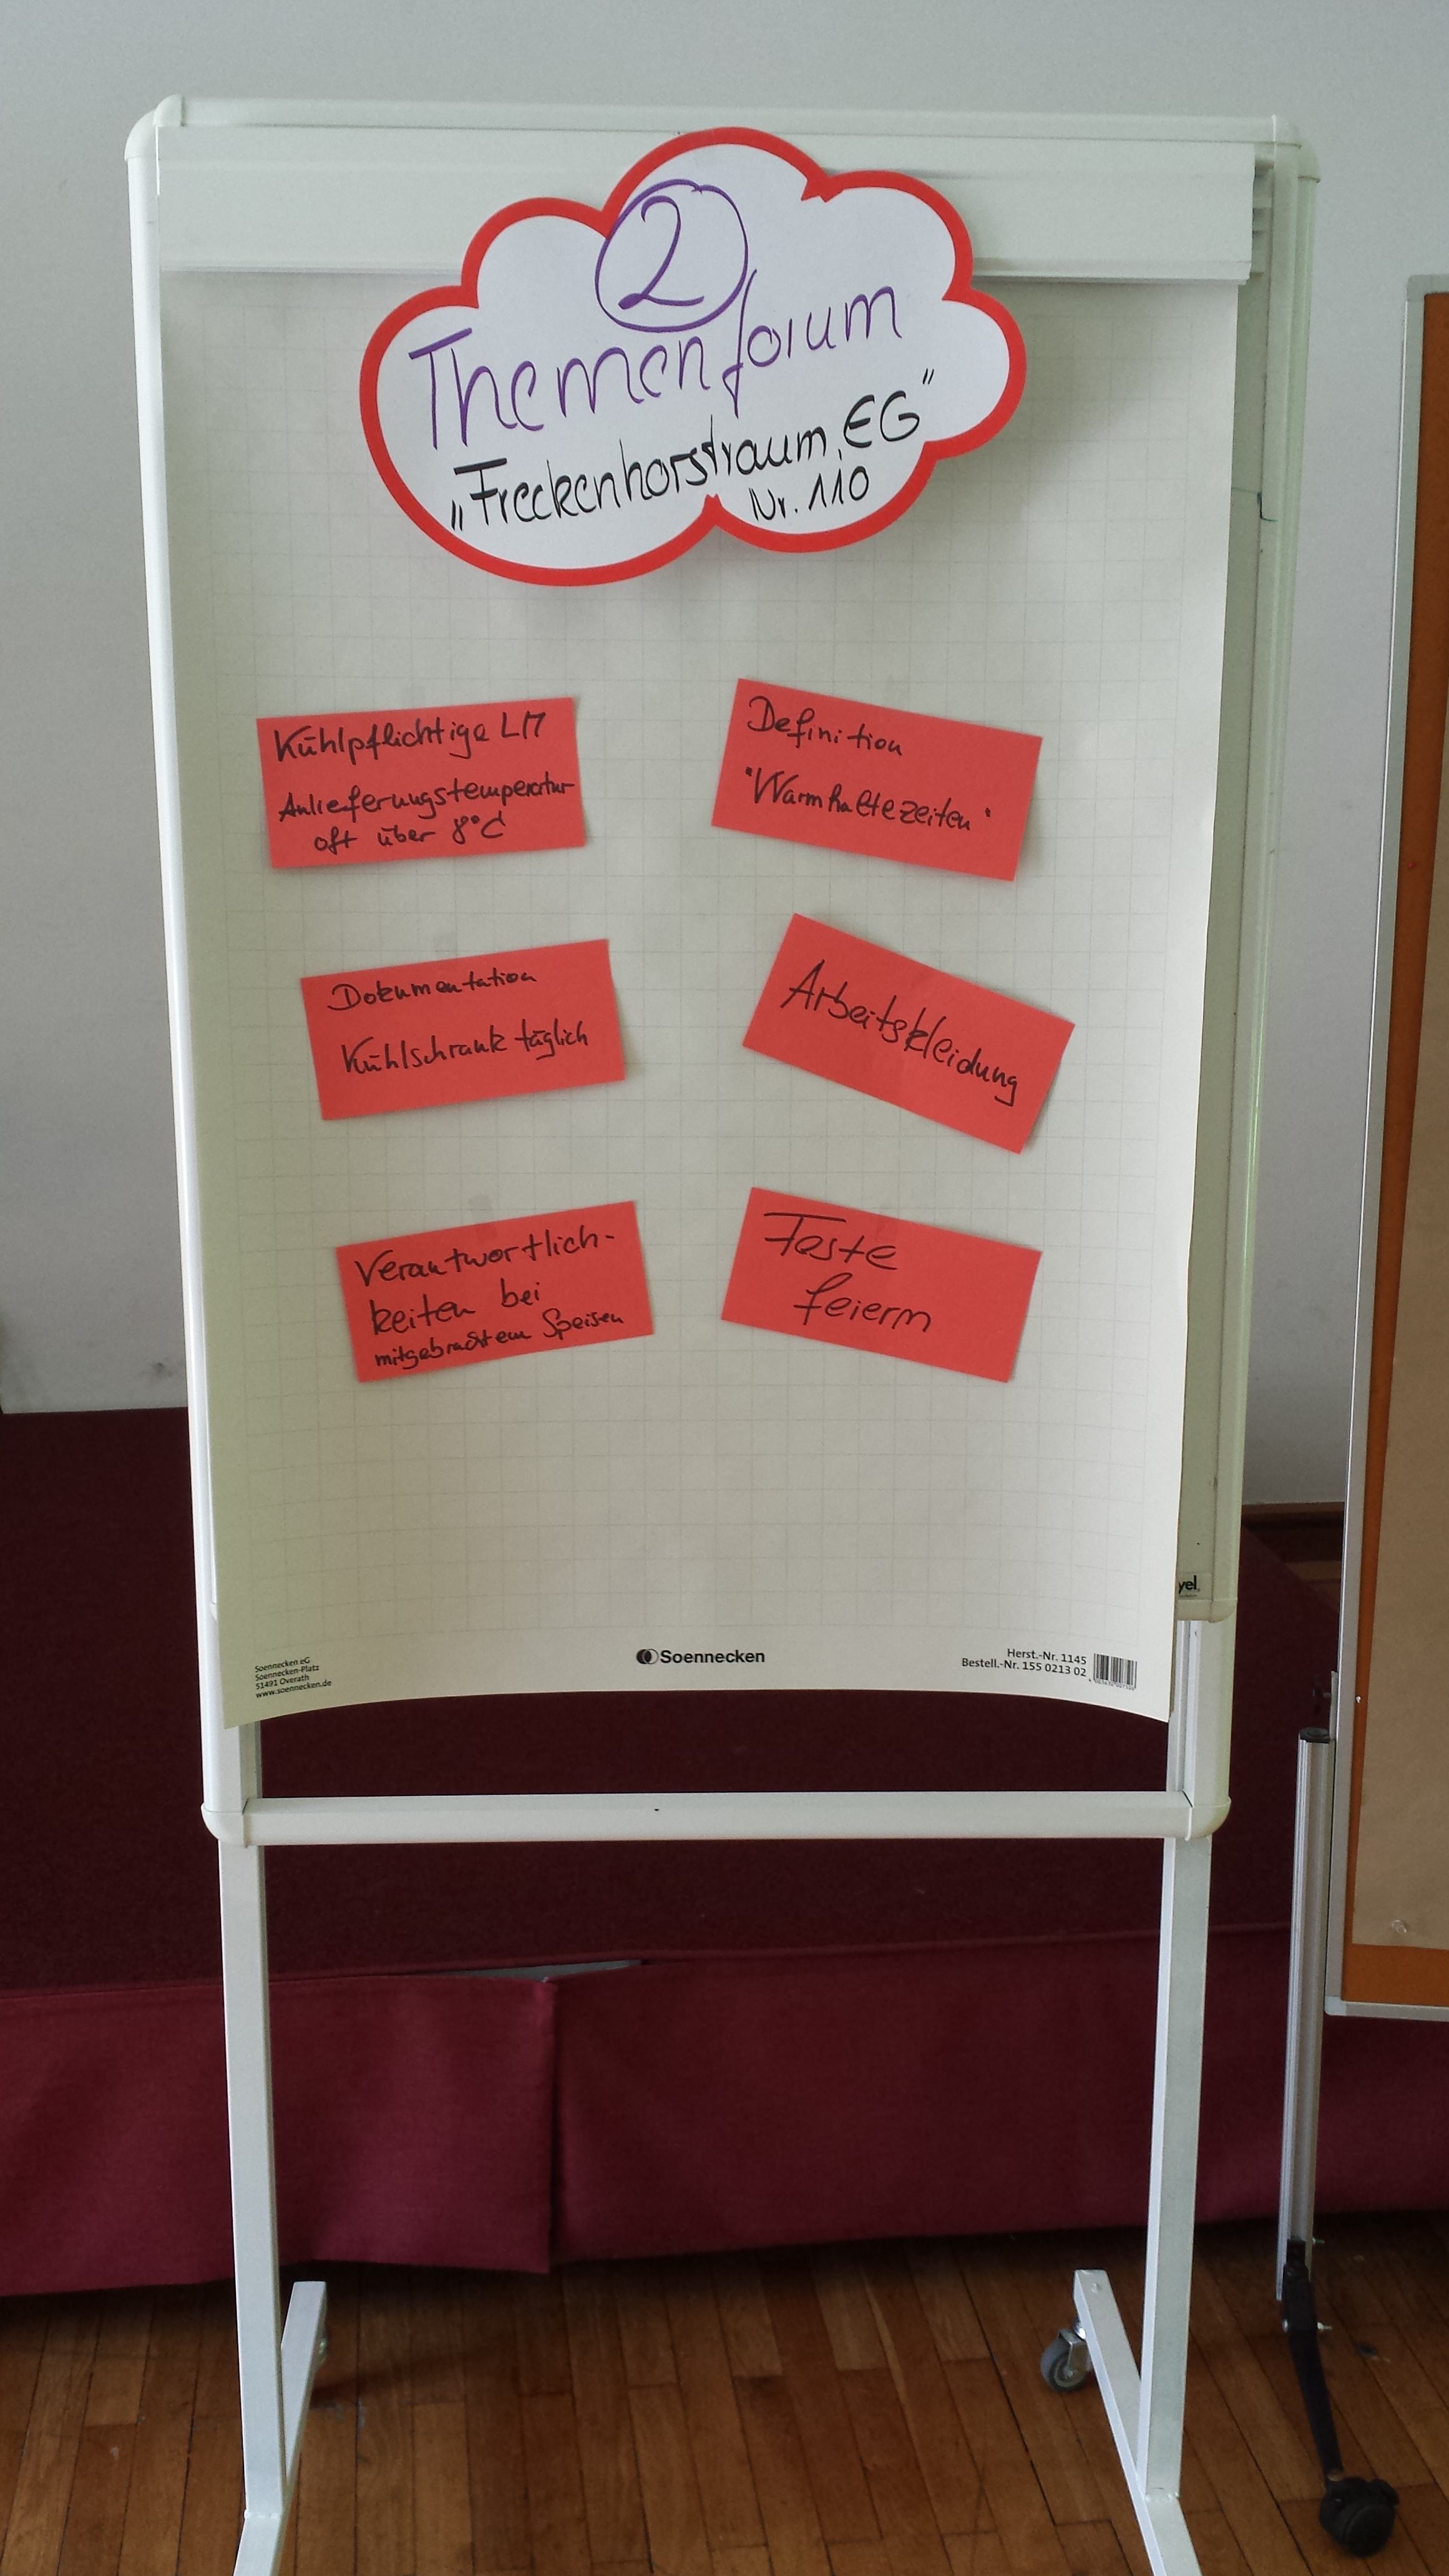 2
Themenforum
„Freckenhorstraum, EG"
Nr. 110
Kühlpflichtige LM
Anlieferungstemperatur
oft über 8°C
Definition
"Warmhaltezeiten"
Dokumentation
Kühlschrank täglich
Arbeitskleidung
Verantwortlich-
keiten bei
mitgebrachtem Speisen
Feste
feiern
Soennecken eG
Soennecken-Platz
51491 Overath
www.soennecken.de
Soennecken
Herst.-Nr. 1145
Bestell.-Nr. 155 0213 02
yel